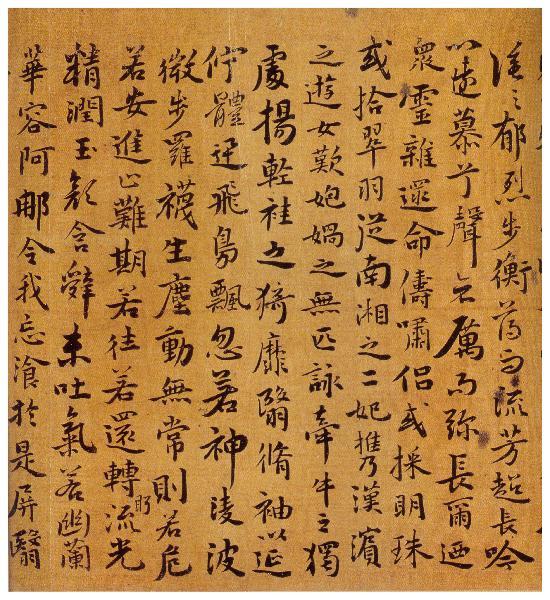 塗之郁烈步衡薄而流芳超長吟
以遠慕兮聲哀厲而弥長爾迺
衆靈雜遝命儔嘯侶或採明珠
或拾翠羽從南湘之二妃攜漢濱
之遊女歎匏媧之無匹詠牽牛之獨
處揚輕袿之猗靡翳脩袖以延
佇體迅飛鳧飄忽若神陵波
微步羅襪生塵動無常則若危
若安進止難期若往若還轉眄流光
精潤玉顏含辭未吐氣若幽蘭
華容阿那令我忘飡於是屏翳